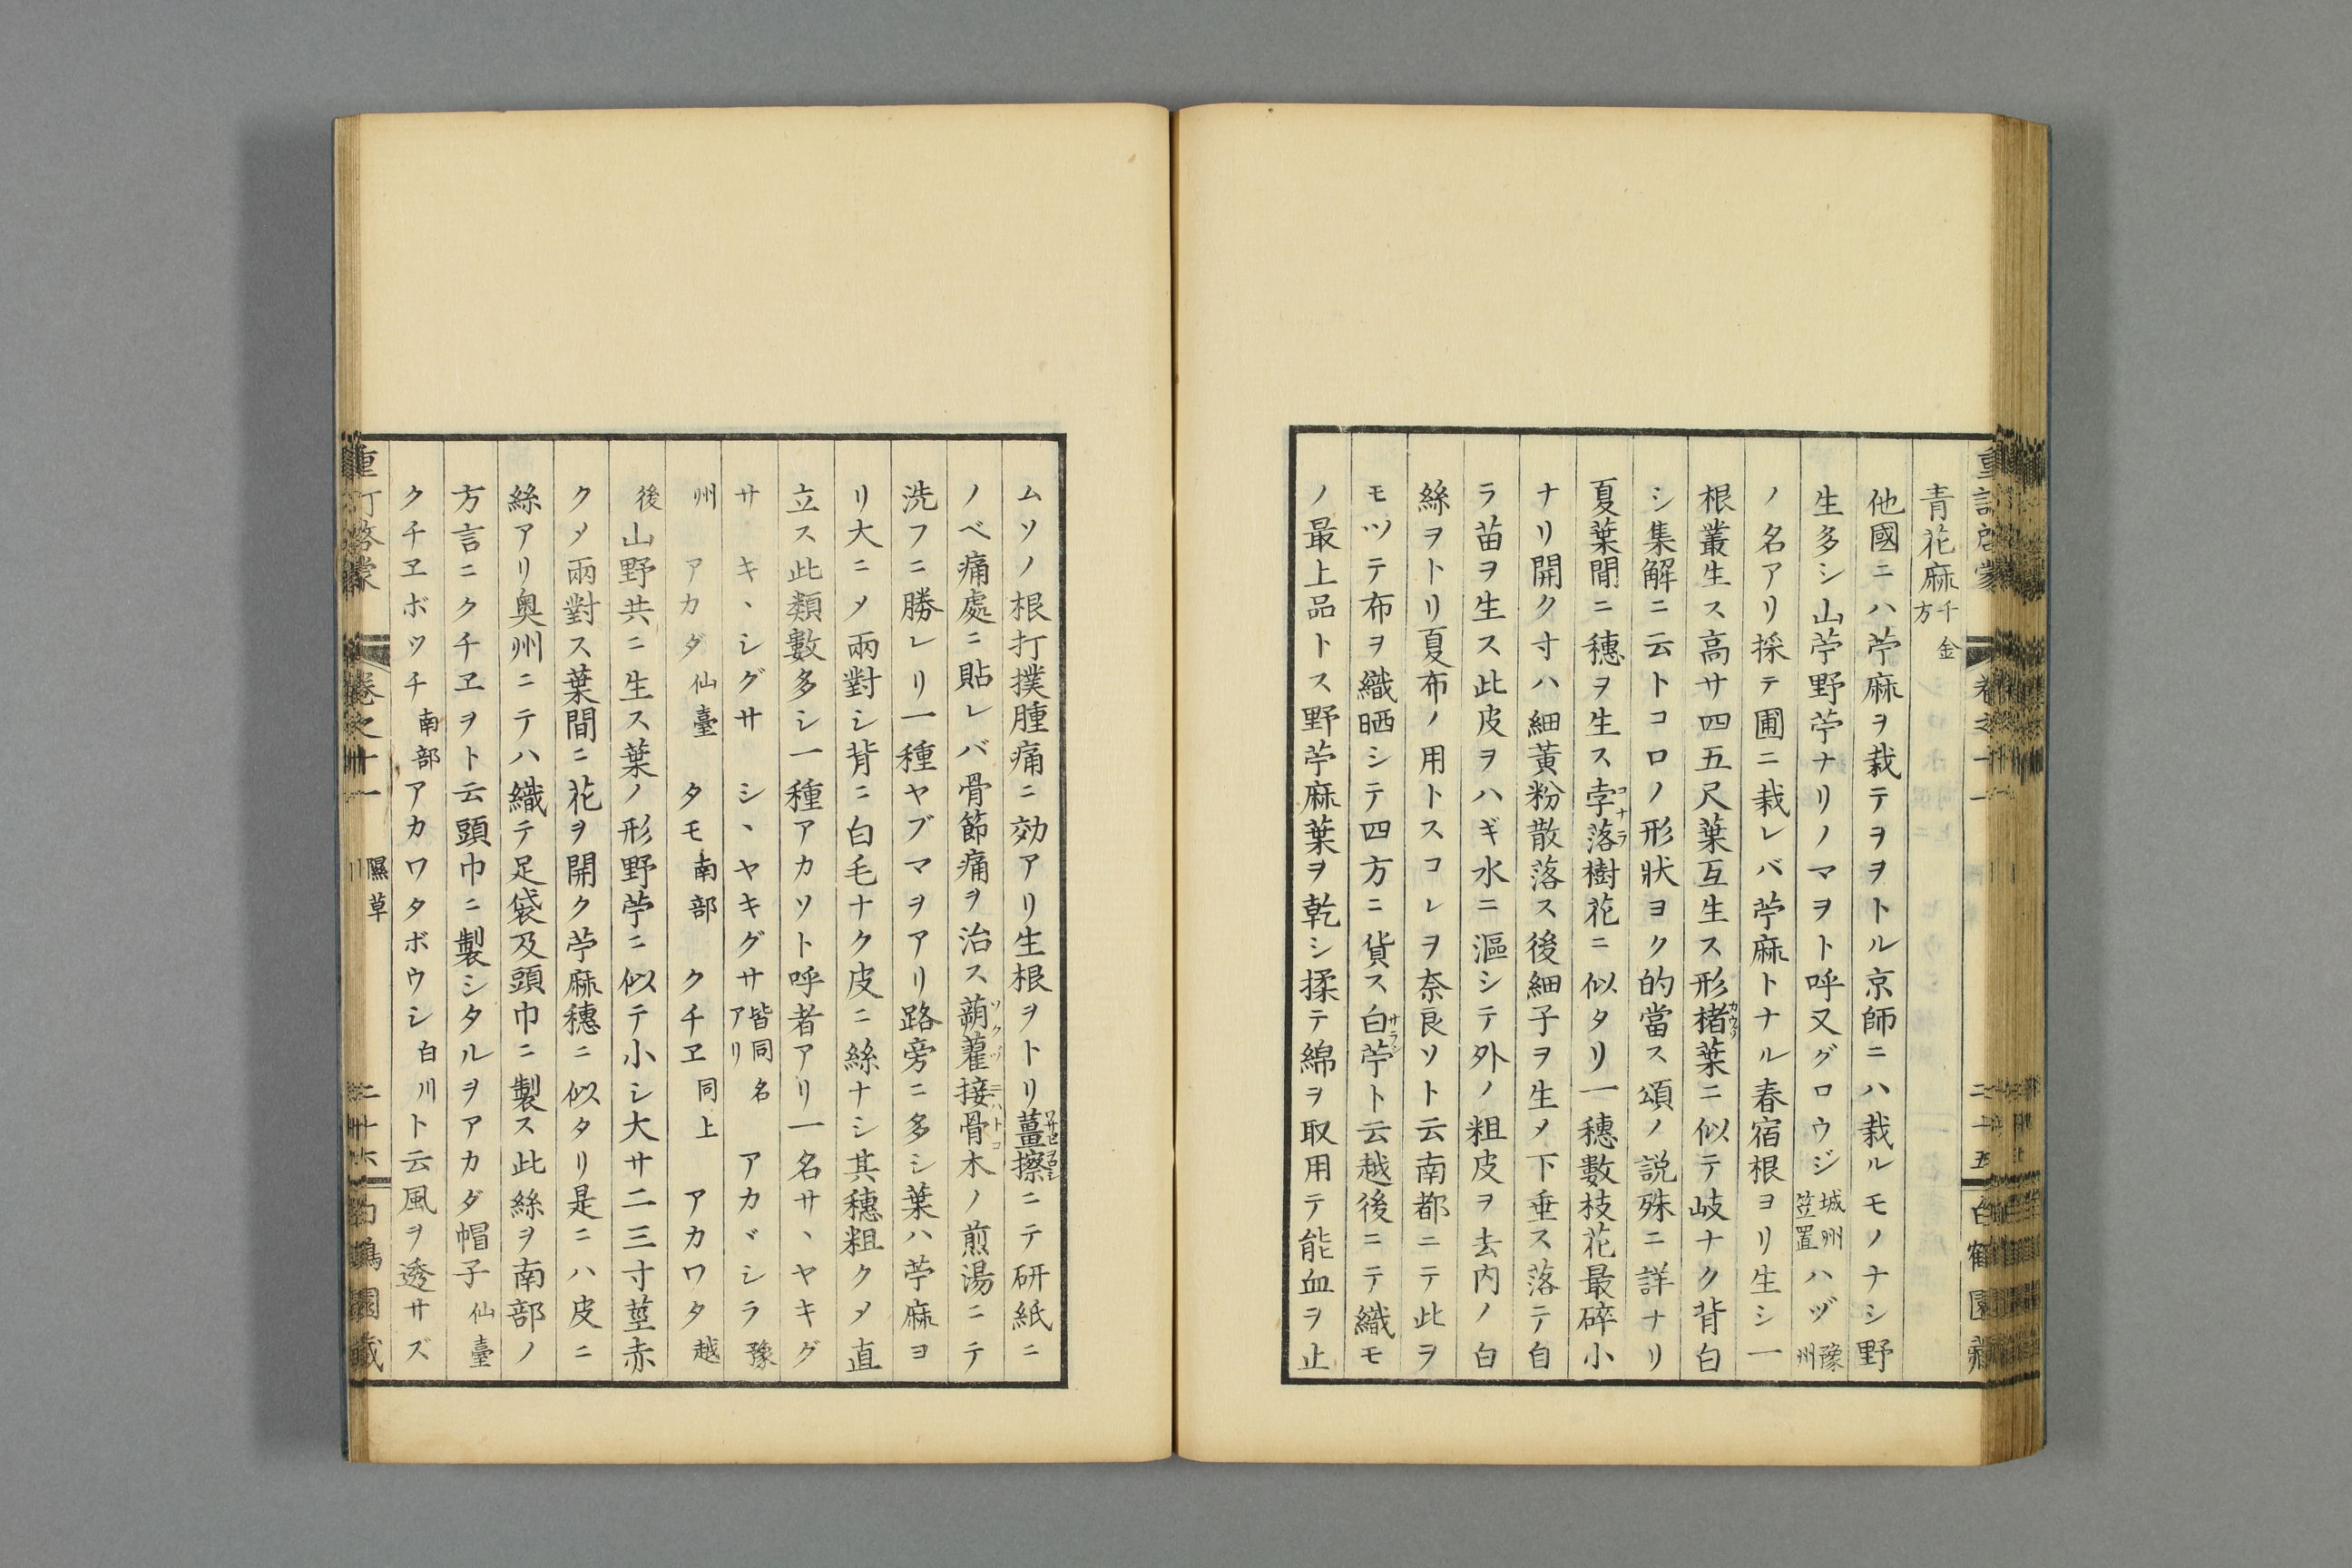 青花麻千金方
他國ニハ苧麻ヲ栽テヲヲトル京師ニハ栽ルモノナシ野
生多シ山苧野苧ナリノマヲト呼又グロウジ城州笠置ハヅ豫州
ノ名アリ採テ圃ニ栽レバ苧麻トナル春宿根ヨリ生シ一
根叢生ス高サ四五尺葉互生ス形楮葉ニ似テ岐ナク背白
シ集解ニ云トコロノ形狀ヨク的當ス頌ノ説殊ニ詳ナリ
夏葉間ニ穗ヲ生ス孛落樹花ニ似タリ一穗數枝花最碎小
ナリ開ク寸ハ細黃粉散落ス後細子ヲ生メ下垂ス落テ自
ラ苗ヲ生ス此皮ヲハギ水ニ漚シテ外ノ粗皮ヲ去内ノ白
絲ヲトリ夏布ノ用トスコレヲ奈良ソト云南都ニテ此ヲ
モツテ布ヲ織晒シテ四方ニ貨ス白苧ト云越後ニテ織モ
ノ最上品トス野苧麻葉ヲ乾シ揉テ綿ヲ取用テ能血ヲ止
ムソノ根打撲腫痛ニ効アリ生根ヲトリ薑擦ニテ研紙ニ
ノベ痛處ニ貼レバ骨節痛ヲ治ス蒴藋接骨木ノ煎湯ニテ
洗フニ勝レリ一種ヤブマヲアリ路旁ニ多シ葉ハ苧麻ヨ
リ大ニメ兩對シ背ニ白毛ナク皮ニ絲ナシ其穗粗クメ直
立ス此類數多シ一種アカソト呼者アリ一名サヽヤキグ
サ キヽシグサ シヽヤキグサ皆同名アリ アカヾシラ豫
州 アカダ仙臺 タモ南部 クチヱ同上 アカワタ越
後山野共ニ生ス葉ノ形野苧ニ似テ小シ大サ二三寸莖赤
クメ兩對ス葉間ニ花ヲ開ク苧麻穗ニ似タリ是ニハ皮ニ
絲アリ奥州ニテハ織テ足袋及頭巾ニ製ス此絲ヲ南部ノ
方言ニクチヱヲト云頭巾ニ製シタルヲアカダ帽子仙臺
クチヱボッチ南部アカワタボウシ白川ト云風ヲ透サズ
卷之十一 隰草 二十六